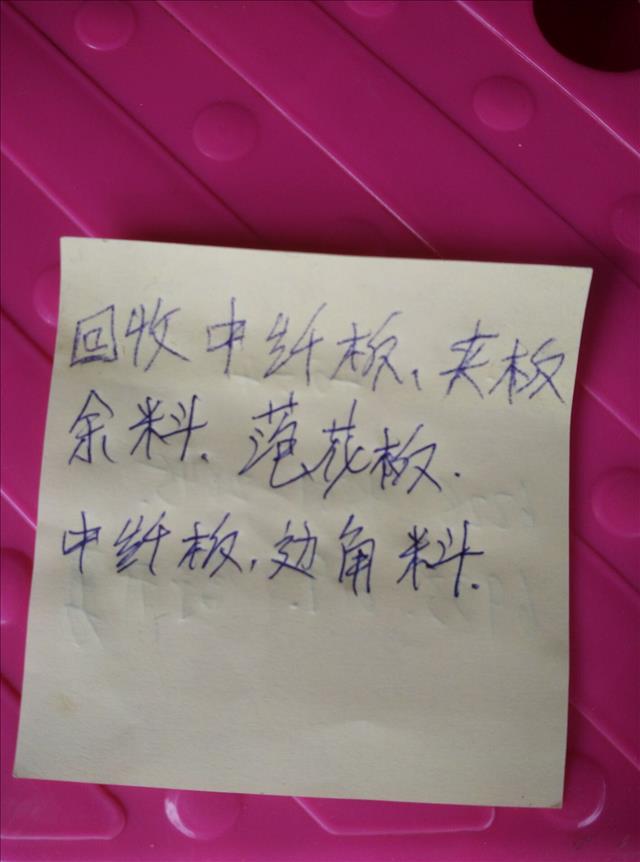 回收中纤板、夹板
余料. 范花板.
中纤板,边角料.